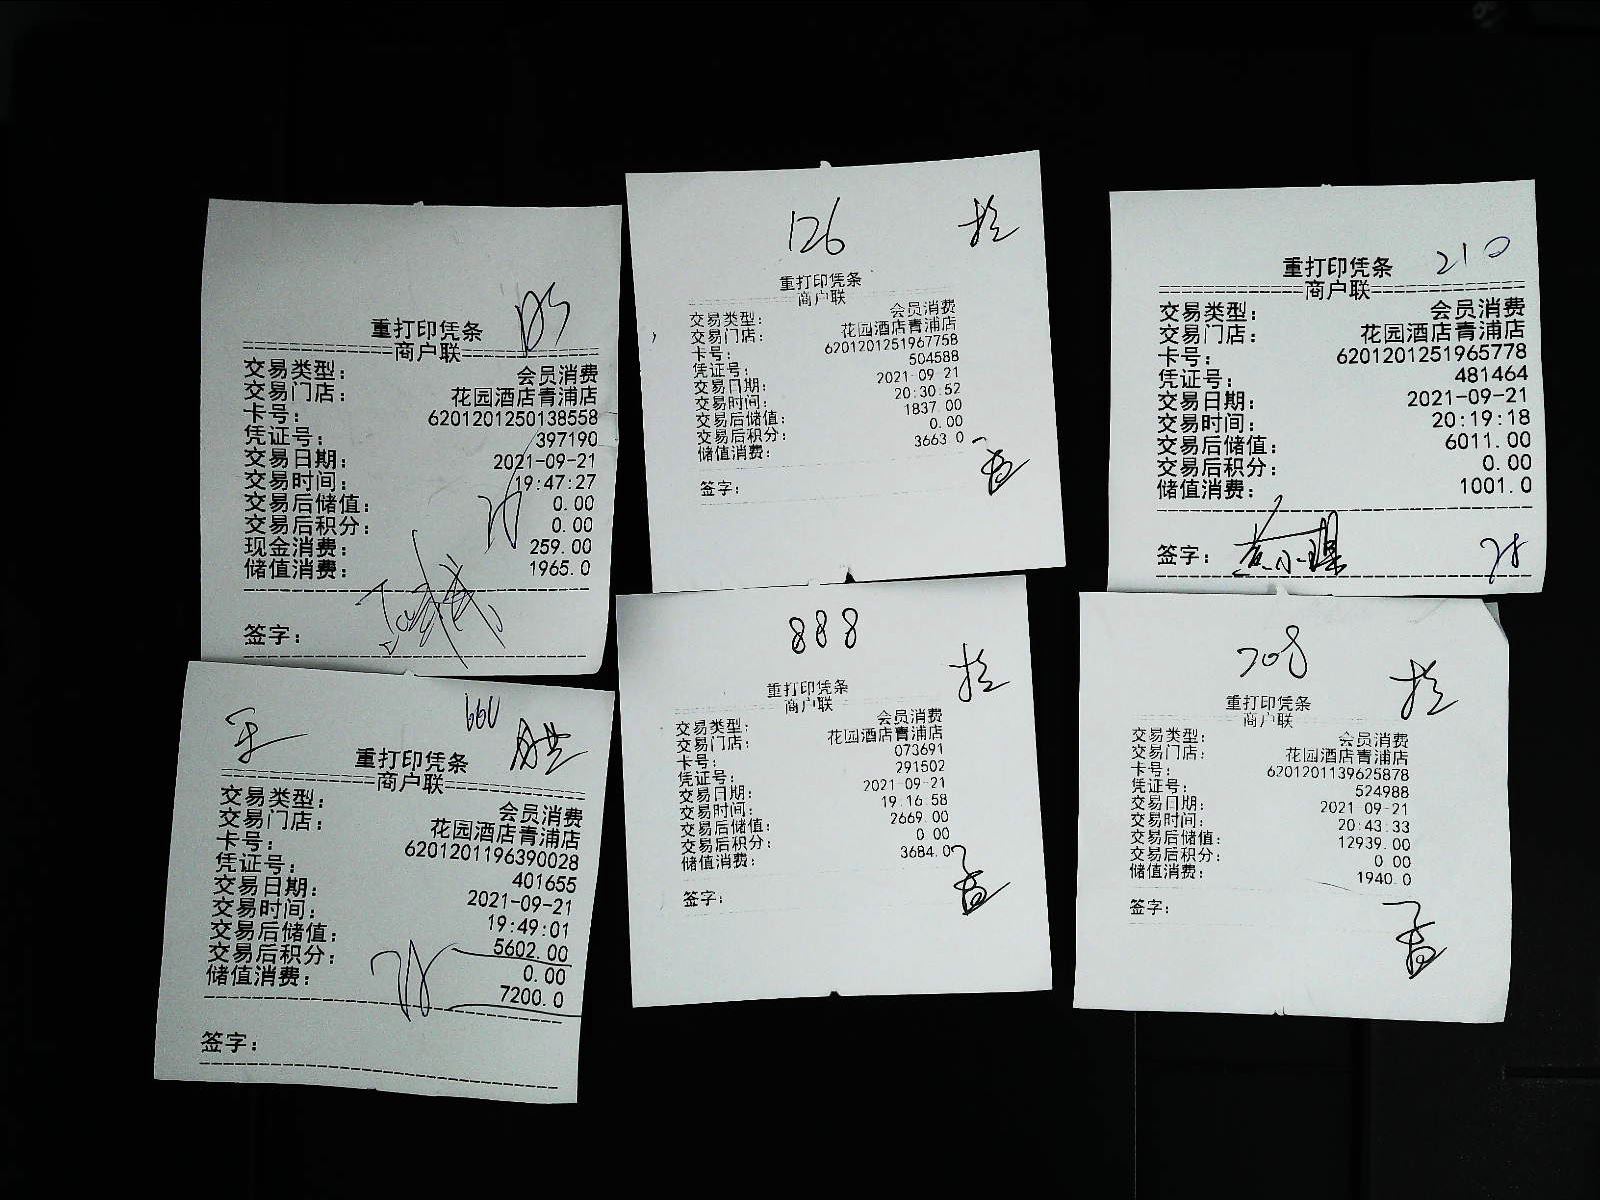 重打印凭条
商户联
交易类型: 会员消费
交易门店: 花园酒店青浦店
卡号: 6201201250138558
凭证号: 397190
交易日期: 2021-09-21
交易时间: 19:47:27
交易后储值: 0.00
交易后积分: 0.00
现金消费: 259.00
储值消费: 1965.0
签字:
126
重打印凭条
商户联
交易类型: 会员消费
交易门店: 花园酒店青浦店
卡号: 6201201251967758
凭证号: 504588
交易日期: 2021-09-21
交易时间: 20:30:52
交易后储值: 1837.00
交易后积分: 0.00
储值消费: 3663.0
签字:
210
重打印凭条
商户联
交易类型: 会员消费
交易门店: 花园酒店青浦店
卡号: 6201201251965778
凭证号: 481464
交易日期: 2021-09-21
交易时间: 20:19:18
交易后储值: 6011.00
交易后积分: 0.00
储值消费: 1001.0
签字:
660
重打印凭条
商户联
交易类型: 会员消费
交易门店: 花园酒店青浦店
卡号: 6201201196390028
凭证号: 401655
交易日期: 2021-09-21
交易时间: 19:49:01
交易后储值: 5602.00
交易后积分: 0.00
储值消费: 7200.0
签字:
888
重打印凭条
商户联
交易类型: 会员消费
交易门店: 花园酒店青浦店
卡号: 073691
凭证号: 291502
交易日期: 2021-09-21
交易时间: 19:16:58
交易后储值: 2669.00
交易后积分: 0.00
储值消费: 3684.0
签字:
708
重打印凭条
商户联
交易类型: 会员消费
交易门店: 花园酒店青浦店
卡号: 6201201139625878
凭证号: 524988
交易日期: 2021-09-21
交易时间: 20:43:33
交易后储值: 12939.00
交易后积分: 0.00
储值消费: 1940.0
签字: